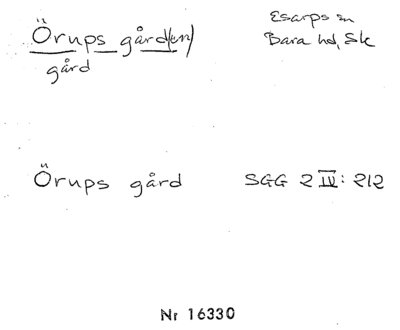 Örups gård(en)
gård
Esarps sn
Bara hd, Sk
Örups gård
SGG 2 IV: 212
Nr 16330